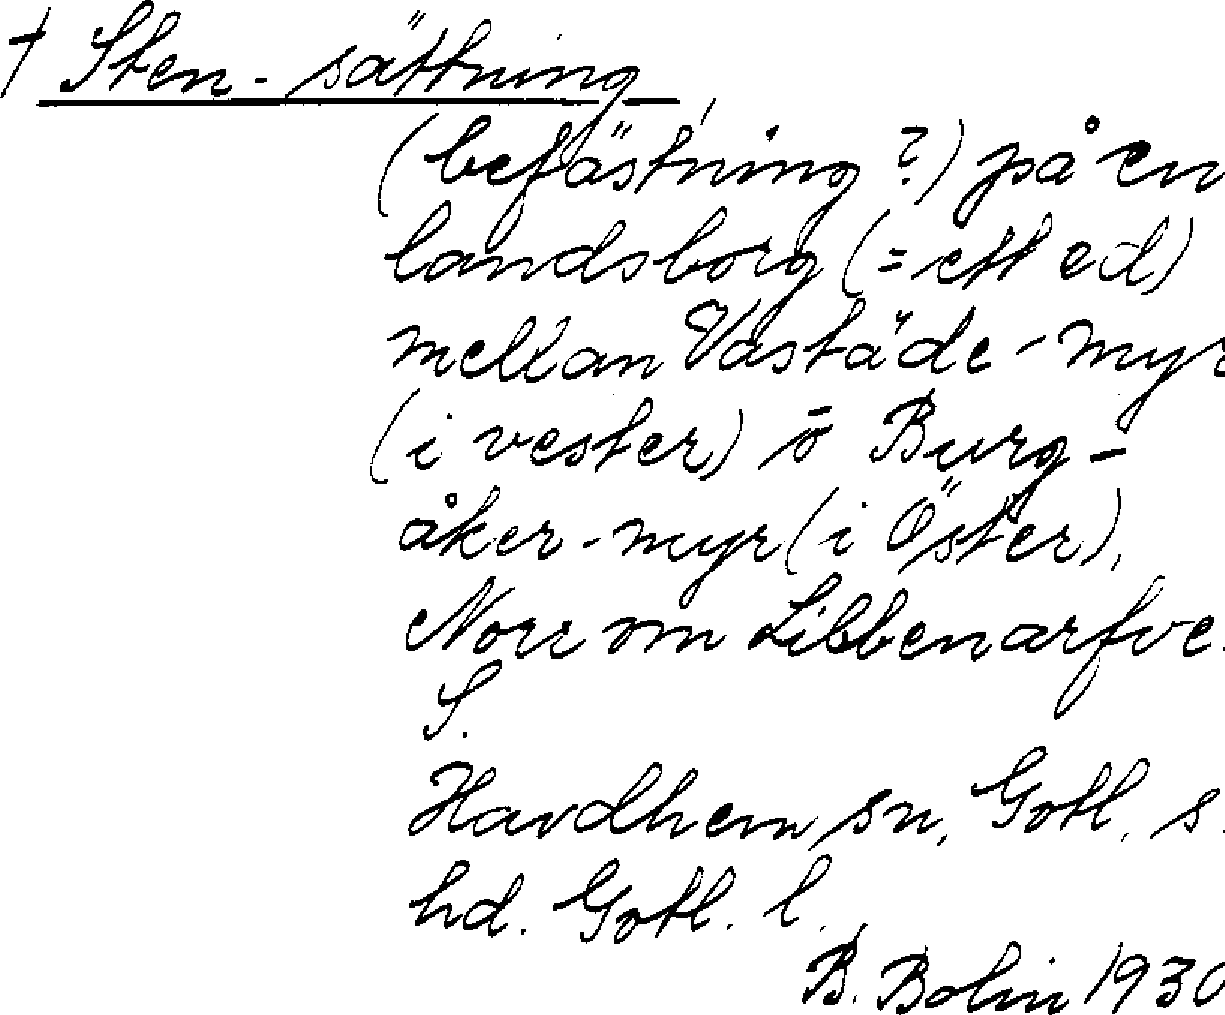 † Sten-sättning,
(befästning?) på en
landsborg (= ett ed)
mellan Vastäde-myr
(i vester) o Burg-
åker-myr (i Öster),
Norr om Libbenarfve.
S.
Havdhem sn, Gotl. s.
hd. Gotl. l.
B. Bolin 1930